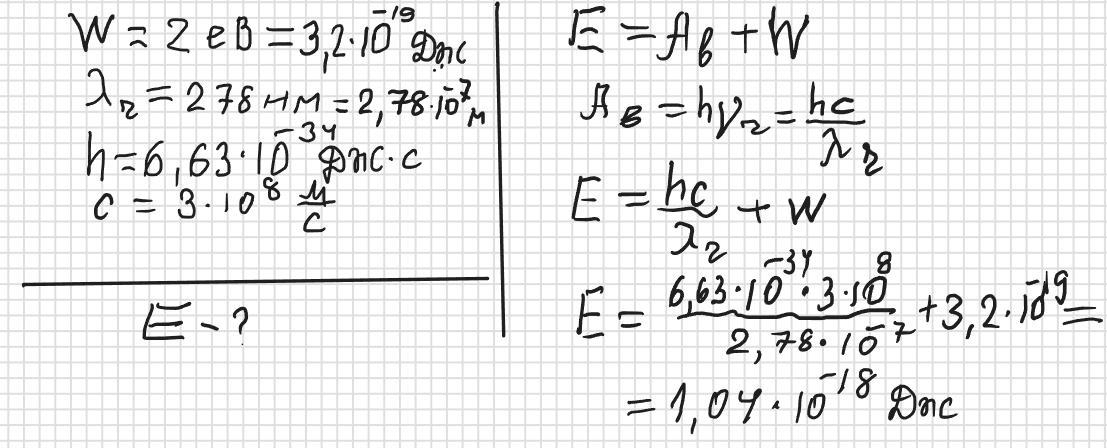 W = 2 еВ = 3,2·10⁻¹⁹ Дж
λг = 278 нм = 2,78·10⁻⁷ м
h = 6,63·10⁻³⁴ Дж·с
c = 3·10⁸ м/с
E - ?
E = Aв + W
Aв = hνг = hc/λг
E = hc/λг + W
E = 6,63·10⁻³⁴·3·10⁸/2,78·10⁻⁷ + 3,2·10⁻¹⁹ =
= 1,04·10⁻¹⁸ Дж